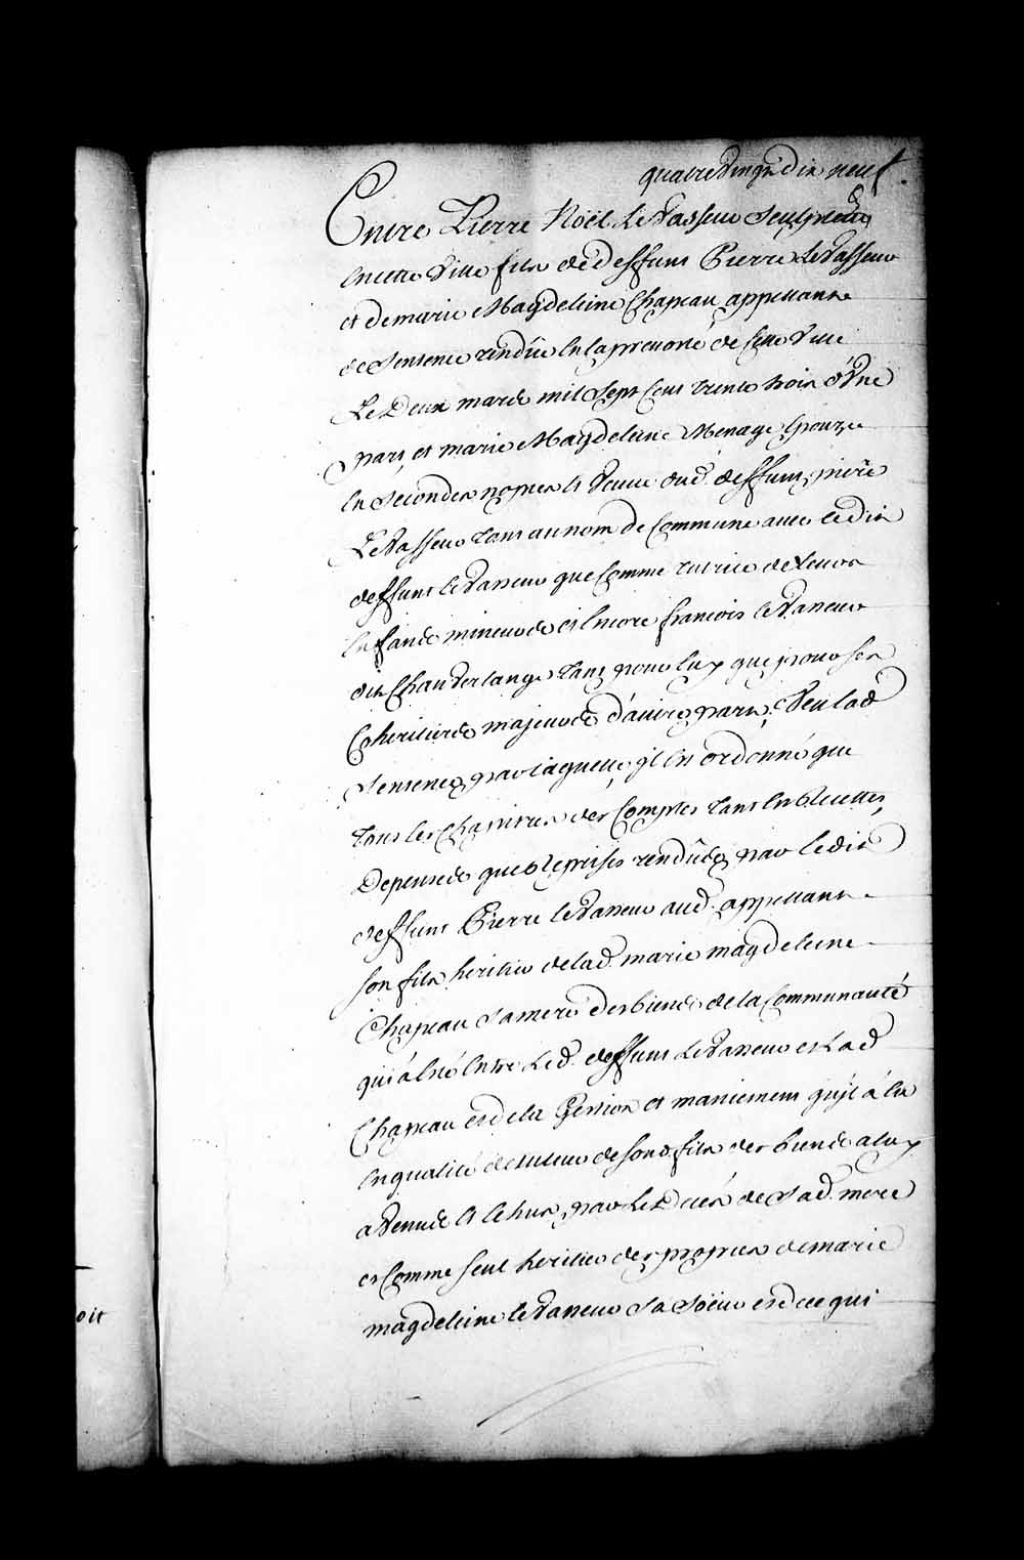 quatre Vingt dix neuf.
Entre Pierre Noël LeVasseur Sculpteur
En cette Ville fils de deffunt Pierre LeVasseur
et de marie Magdeleine Chapeau appellante
de Sentence rendüe En la prevosté de cette Ville
Le Deux mars mil Sept Cent trente trois d'Une
part, et marie Magdeleine Menage Epouze
En Secondes nopces et Veuve dud. deffunt pierre
LeVasseur tant au nom de Commune avec ledit
deffunt leVasseur que Comme tutrice de Leurs
Enfants mineurs et Encore francois leVasseur
dit Chaverlange tant pour luy que pour ses
Coheritiers majeurs d'autre part; Veu lad
Sentence par laquelle il Est ordonné que
tous les Chapitres des Comptes tant En Recettes,
Depenses que Reprises rendües par ledit
deffunt Pierre leVasseur aud. appellant
son fils heritier de lad. marie magdeleine
Chapeau Sa mere Des biens de la Communauté
qui à Eté Entre Led. deffunt LeVasseur et Lad
Chapeau et de la Gestion et maniement qu'il à Eu
En qualité de tuteur de Sond. fils des biens a luy
aVenus et Echus par Le Deces de Sad. mere
et Comme seul heritier des propres de marie
magdeleine leVasseur Sa Soeur et de ce qui
oit